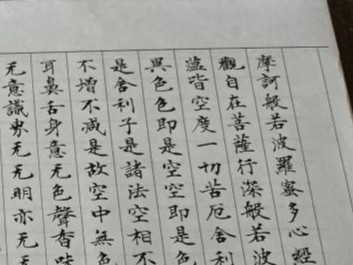 摩訶般若波羅蜜多心經
觀自在菩薩行深般若波
蘊皆空度一切苦厄舍利
異色色即是空空即是色
是舍利子是諸法空相不
不增不減是故空中無色
耳鼻舌身意无色聲香味
无意識界无无明亦无无